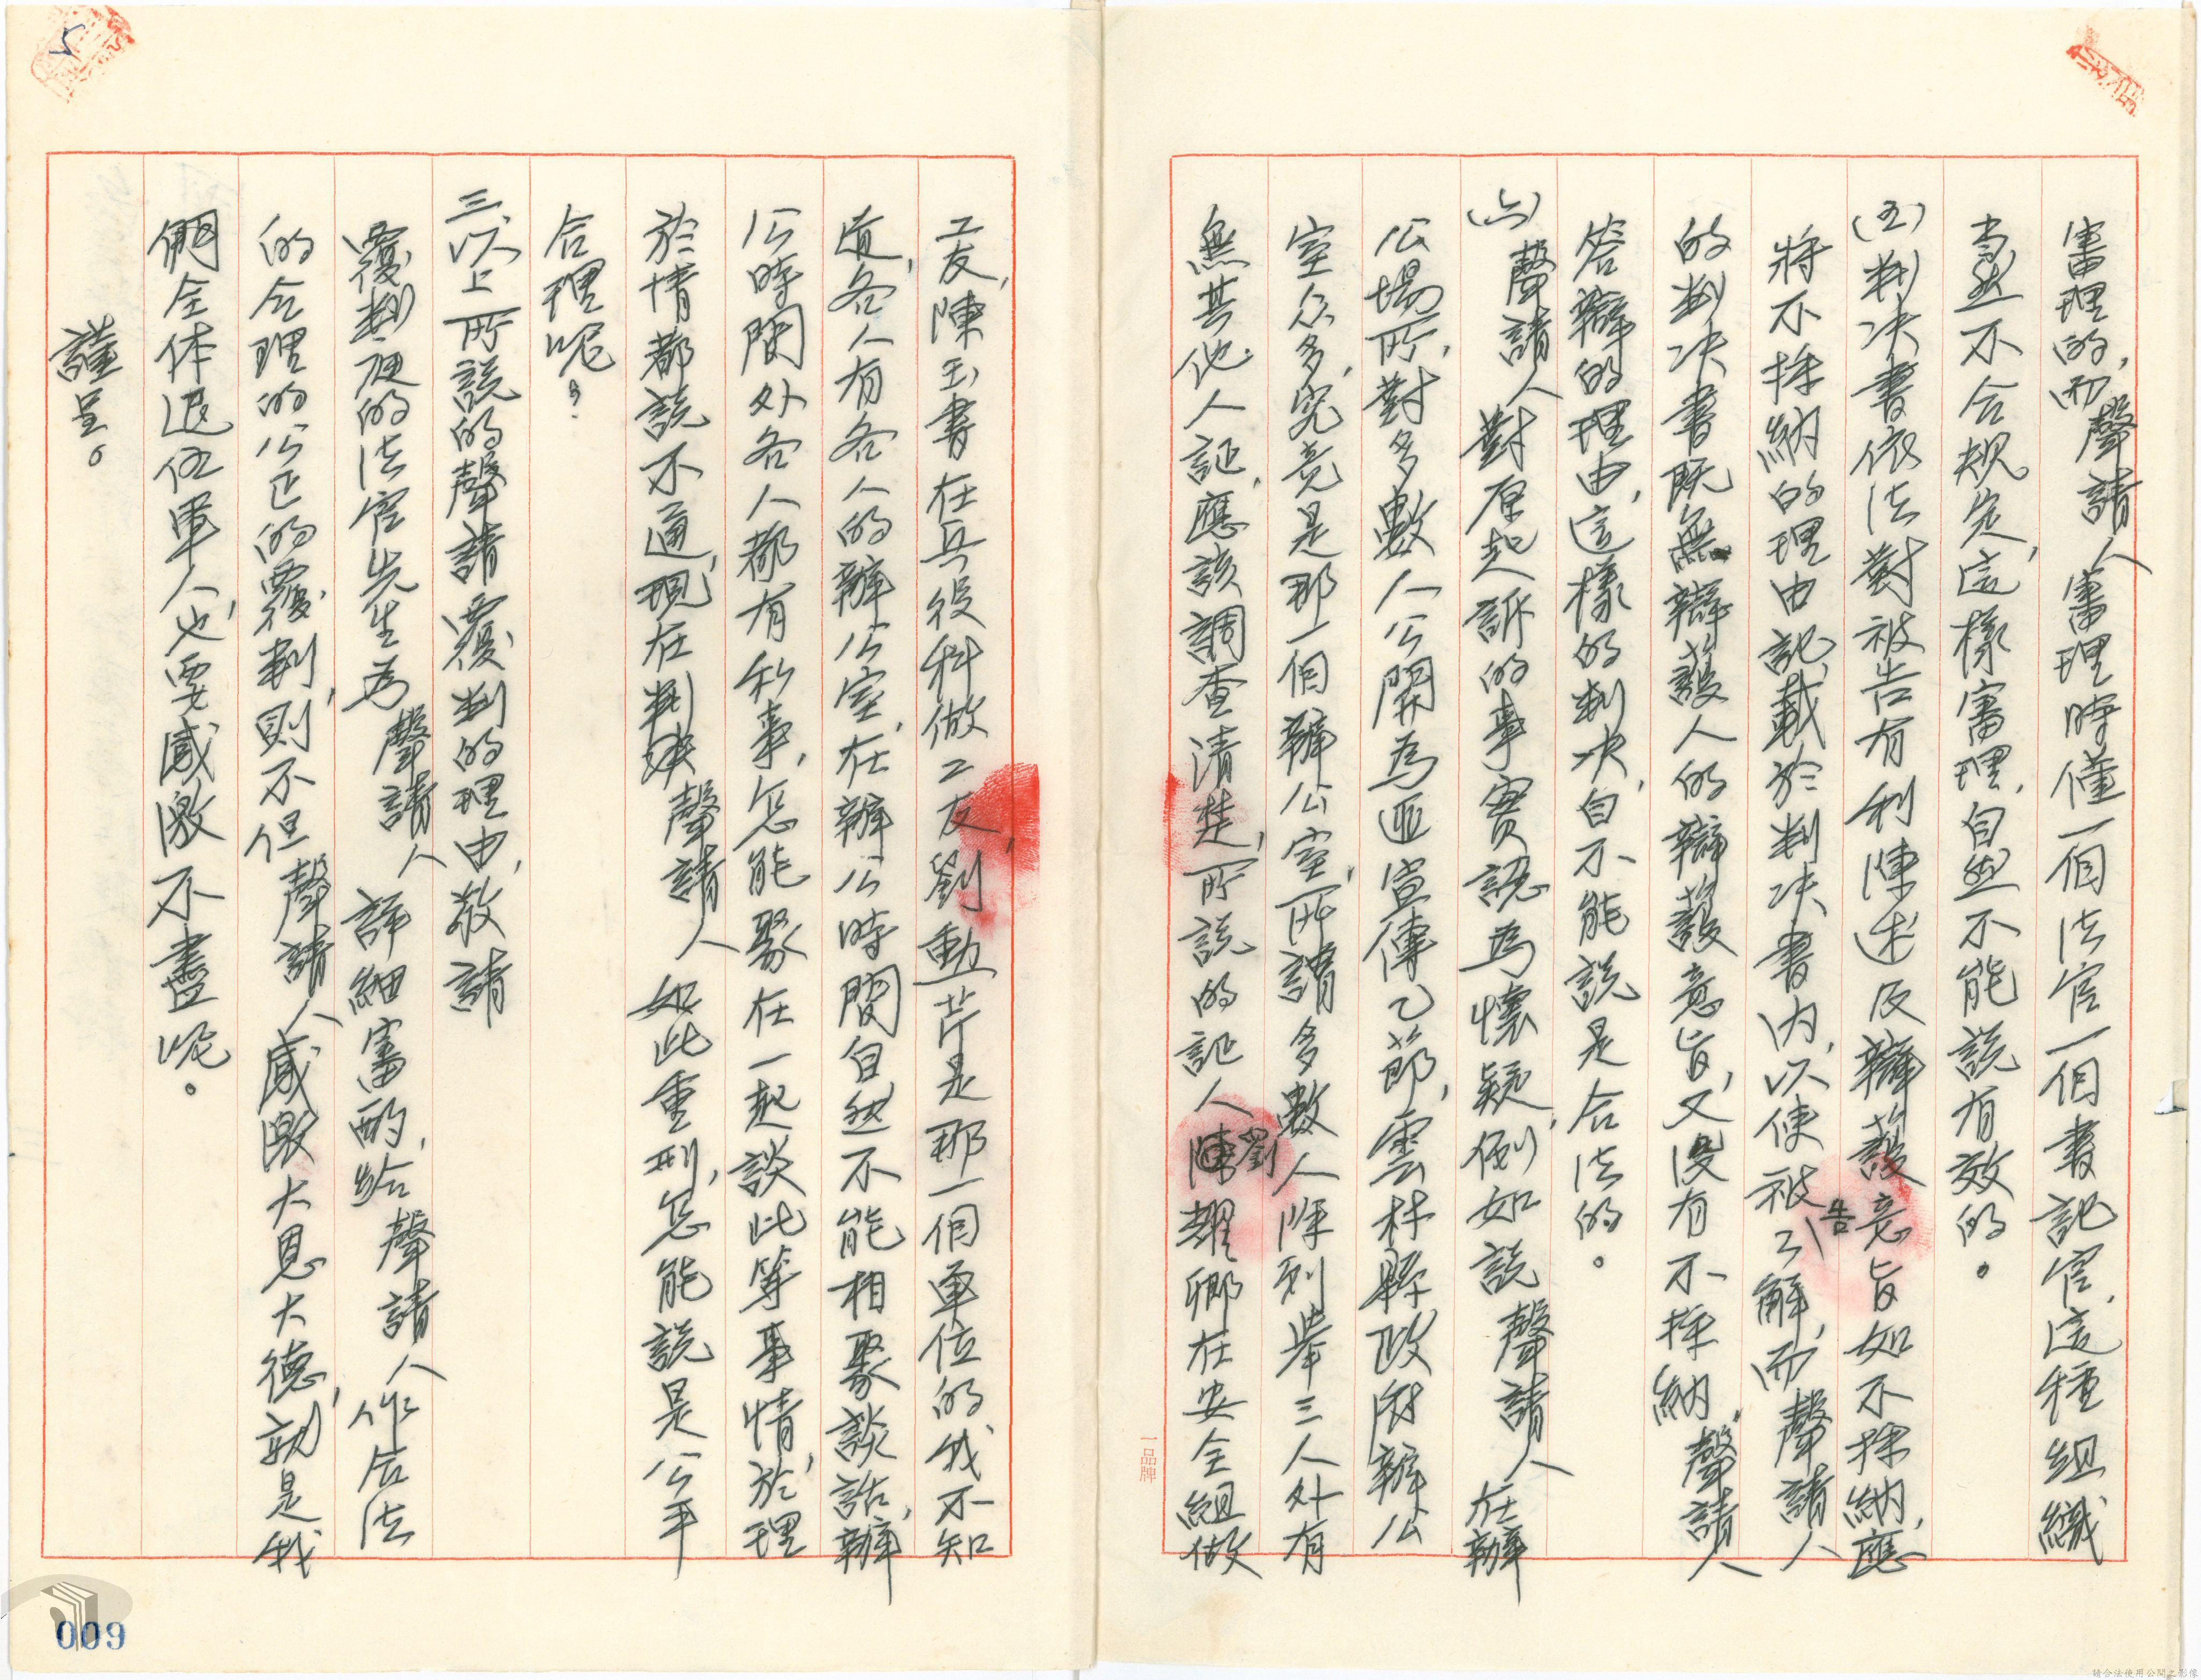 審理的,而聲請人審理時僅一個法官一個書記官,這種組織
當然不合規定,這樣審理,自然不能說有效的。
(五)判決書依法對被告有利陳述及辯護意旨如不採納,應
將不採納的理由記載於判決書內,以使被告了解,而聲請人
的判決書既無辯護人的辯護意旨,又沒有不採納聲請人
答辯的理由,這樣的判決,自不能說是合法的。
(六)聲請人對原起訴的事實認為懷疑,例如說聲請人在辦
公場所,對多數人公開為匪宣傳乙節,雲林縣政府辦公
室众多,究竟是那一個辦公室,所謂多數人除列舉三人外有
無其他人証,應該調查清楚,所說的証人劉耀卿在安全組做
工友,陳玉書在兵役科做工友,劉動芹是那一個單位的我不知
道,各人有各人的辦公室,在辦公時間自然不能相聚談話,辦
公時間外各人都有私事,怎能聚在一起談此等事情,於理
於情都說不通,現在判決聲請人如此重刑,怎能說是公平
合理呢?
三、以上所說的聲請覆判的理由,敬請
覆判庭的法官先生為聲請人詳細審酌,給聲請人作合法
的合理的公正的覆判,則不但聲請人感激大恩大德,就是我
們全体退伍軍人也要感激不盡呢。
謹呈。
5
009
一品牌
請合法使用公開之影像